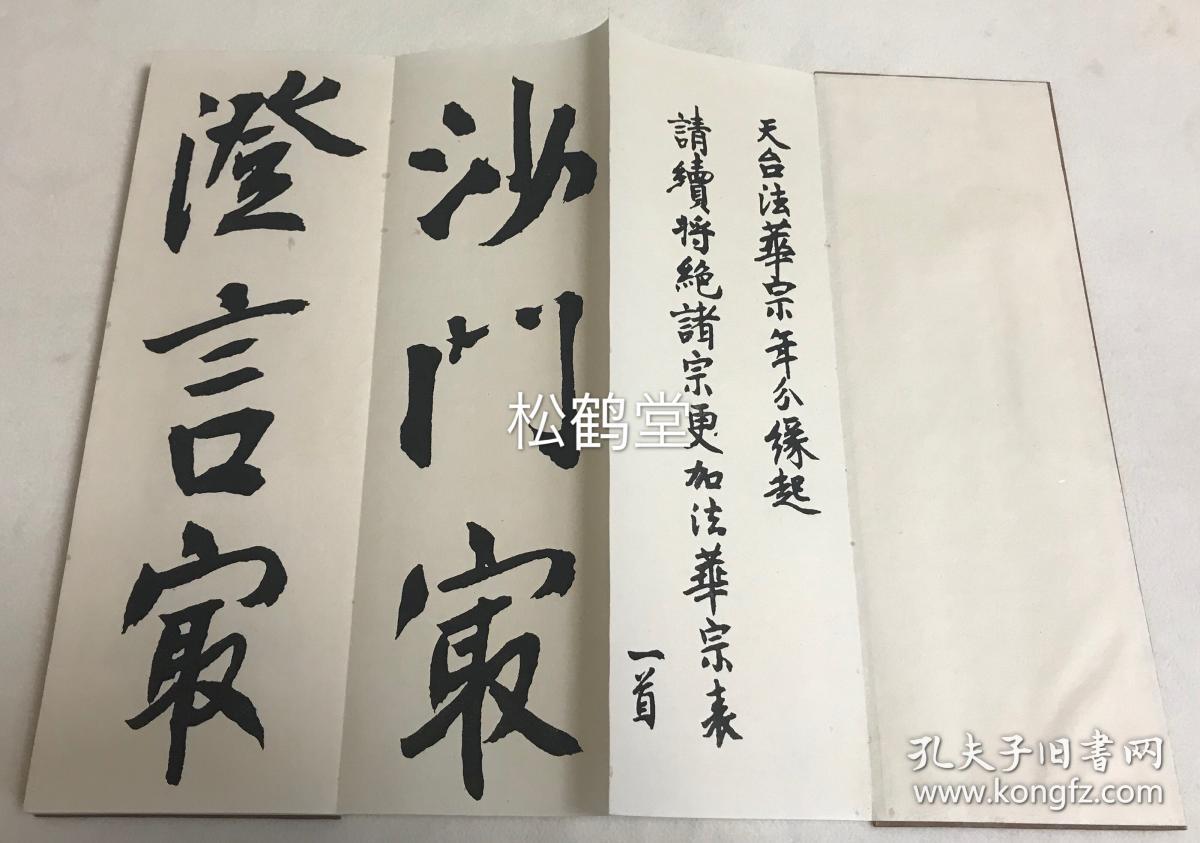 天台法華宗年分緣起
請續將絶諸宗更加法華宗表
一首
沙門寂
澄言寂
松鹤堂
孔夫子旧书网
www.kongfz.com